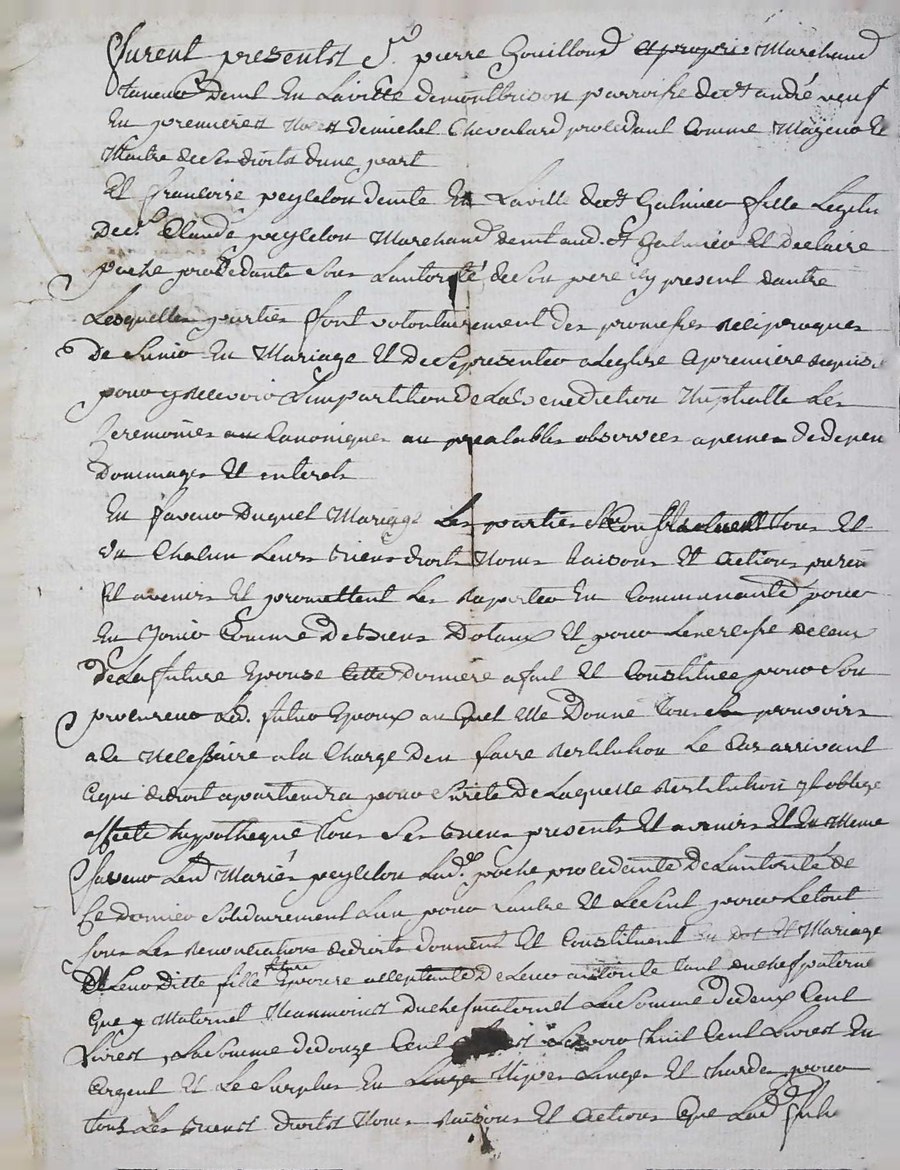 furent presentst Sr. pierre Gouilloud Marchand
taneur demt En Laville demontbrison parroisse de st andré veuf
En premierest nocest demichel Chevalard procédant Comme Majeur Et
Maitre de Ses droits dune part
Et francoise peysselon demte En Laville de st Galmier fille Legitte
De sr. Claude peysselon Marchand demt aud. st Galmier Et de claire
poche procedante Sous Lautorité de Son pere icy present dautre
Lesquelles parties font volontairement des promesses Reciproques
De Sunir En Mariage Et de Se presenter a Leglise a premiere Requis.
pour y Recevoir Limpartition de La Benediction Nuptialle Les
Ceremonies Canoniques au prealables observées a peines de depen
Dommages Et interets
En faveur Duquel Mariage Les parties Se Constituent tous Et
Un Chacun Leurs biens droits Noms Raisons Et actions presen
Et avenirs Et promettent Les Raporter En Communauté pour
En Jouir Comme De Biens Dotaux Et pour Lenclesse de ceux
De La future Epouse Cette Derniere a fait Et Constitué pour Son
procureur Led. futur Epoux auquel Elle Donne tous pouvoirs
a Ce Necessaire a la Charge Den faire Restitution Le Cas arrivant
a qui de droit apartiendra pour Sureté De Laquelle Restitution il oblige
affecte hypotheque tous Ses biens presents Et avenirs Et En Meme
faveur Lesd Mariés peysselon Lad. poche procedante De Lautorité de
Ce dernier Solidairement Lun pour Lautre Et Le Seul pour Le tout
sous Les Renonciations de droits donnent Et Constituent En dot Et Mariage
a Leur Ditte fille future Epouse acceptante De Leur autorité tant du chef paternel
que Maternel Neanmoins du chef maternel La Somme De deux Cent
Livrest, La Somme de douze Cent Scavoir huit Cent Livrest En
argent Et Le Surplus En Nipes Linges Et hardes pour
tous Les biens droits Noms Raisons Et actions Que Lad. futu